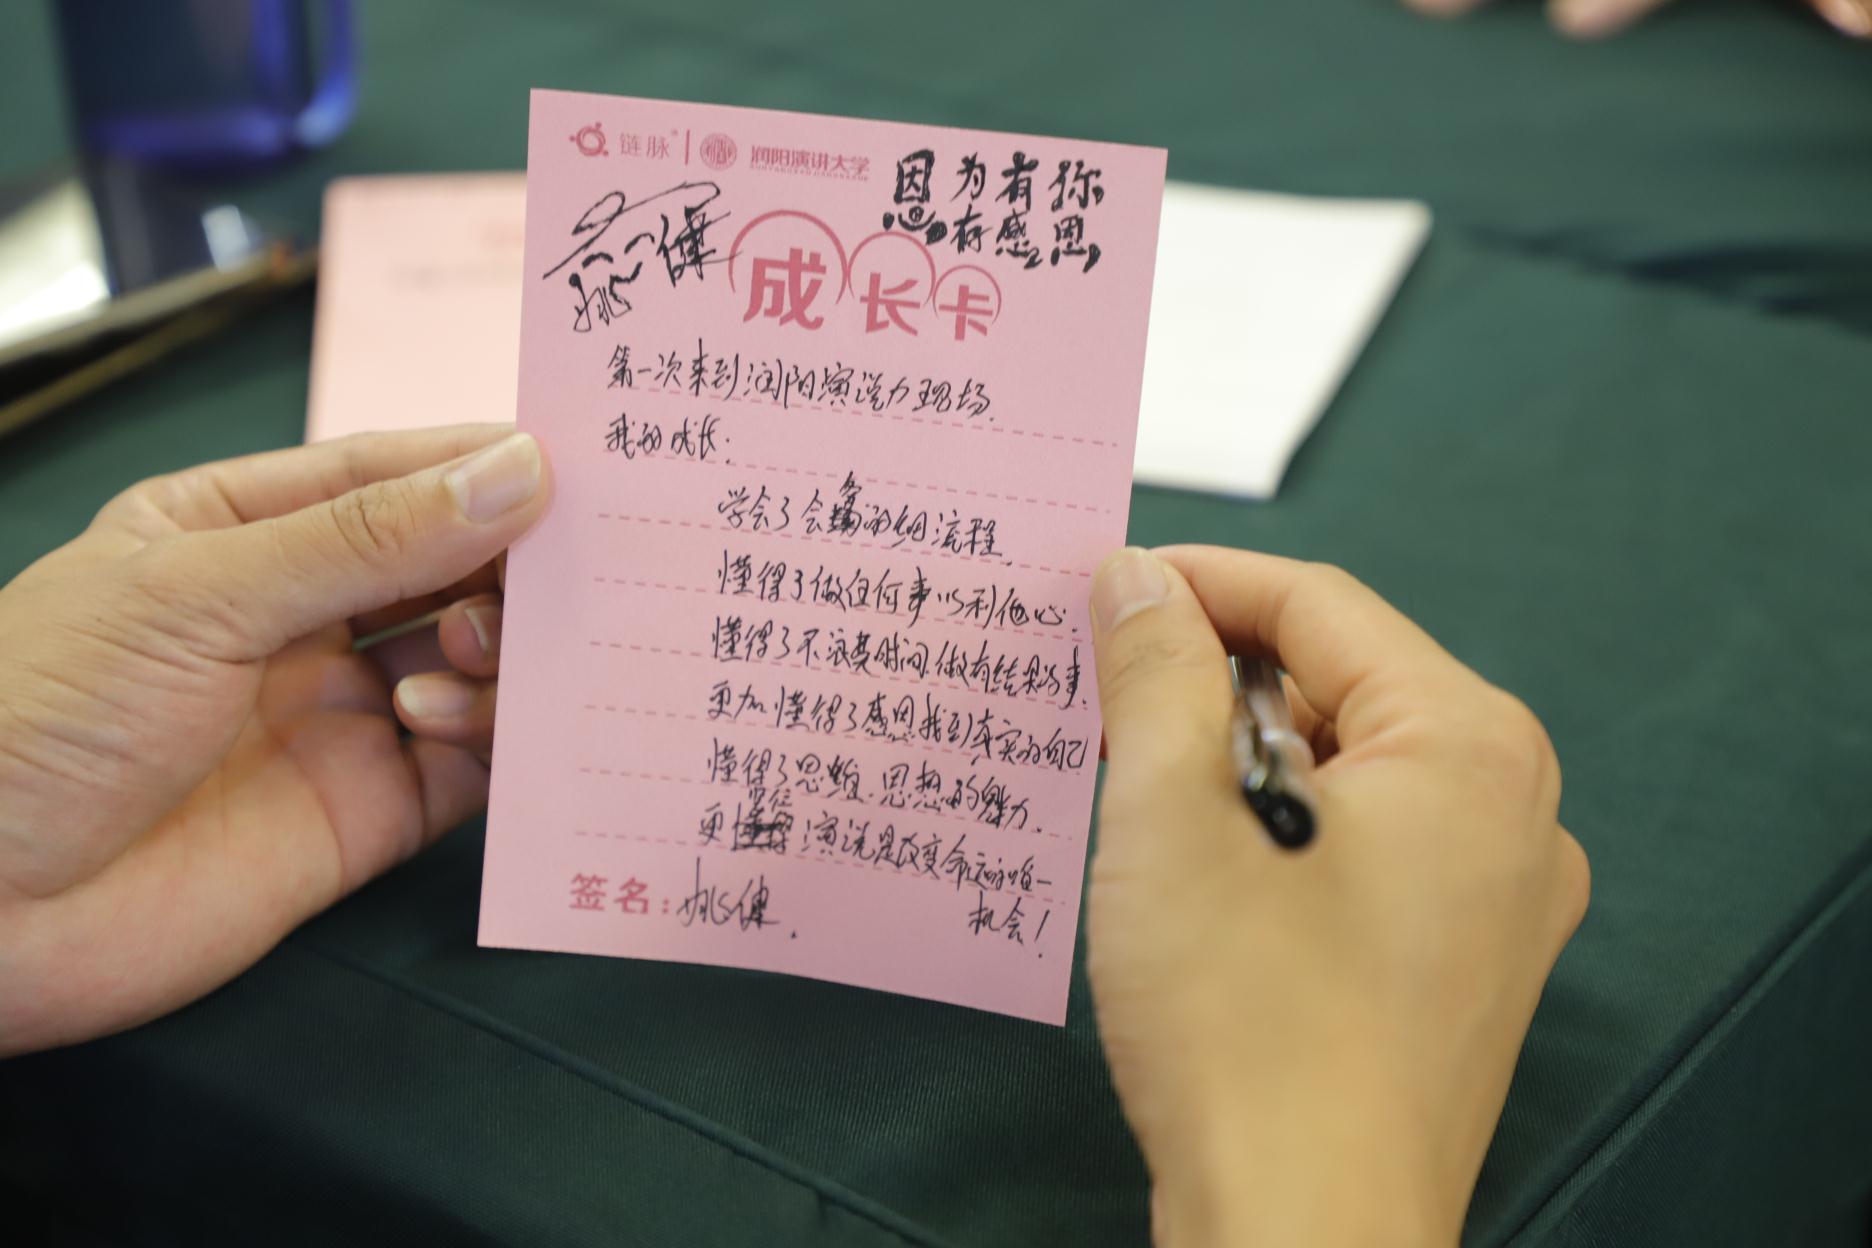 链脉® 润阳演讲大学
因为有你
存感恩
姚健
成长卡
第一次来到润阳演说力现场.
我的成长:
学会了会务的细流程.
懂得了做任何事以利他心.
懂得了不浪费时间.做有结果的事.
更加懂得了感恩找到真实的自己
懂得了思维.思想的魅力.
更定位演说是改变命运的唯一
机会!
签名: 姚健.